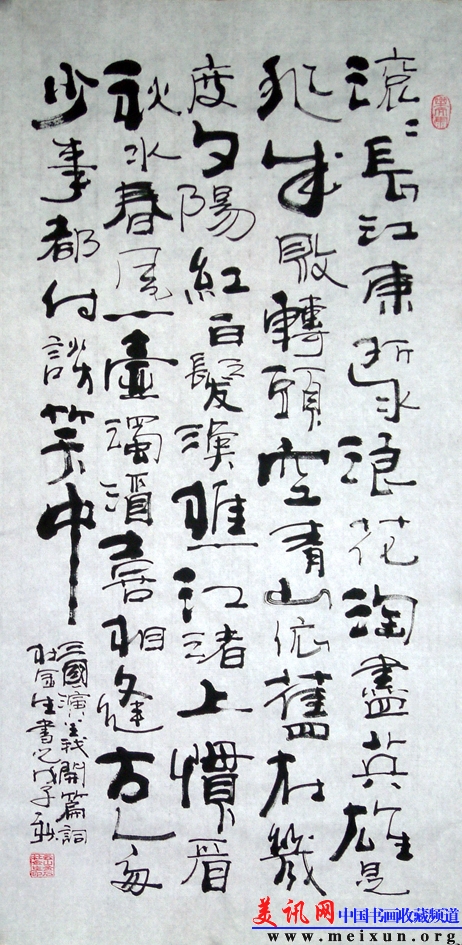 滚〻長江東逝水浪花淘盡英雄是
非成敗轉頭空青山依舊在幾
度夕陽紅白髮漁樵江渚上慣看
秋水春風一壺濁酒喜相逢古今多
少事都付談笑中
三國演義開篇詞
生書之戊子秋
美讯网 中国书画收藏频道
www.meixun.org